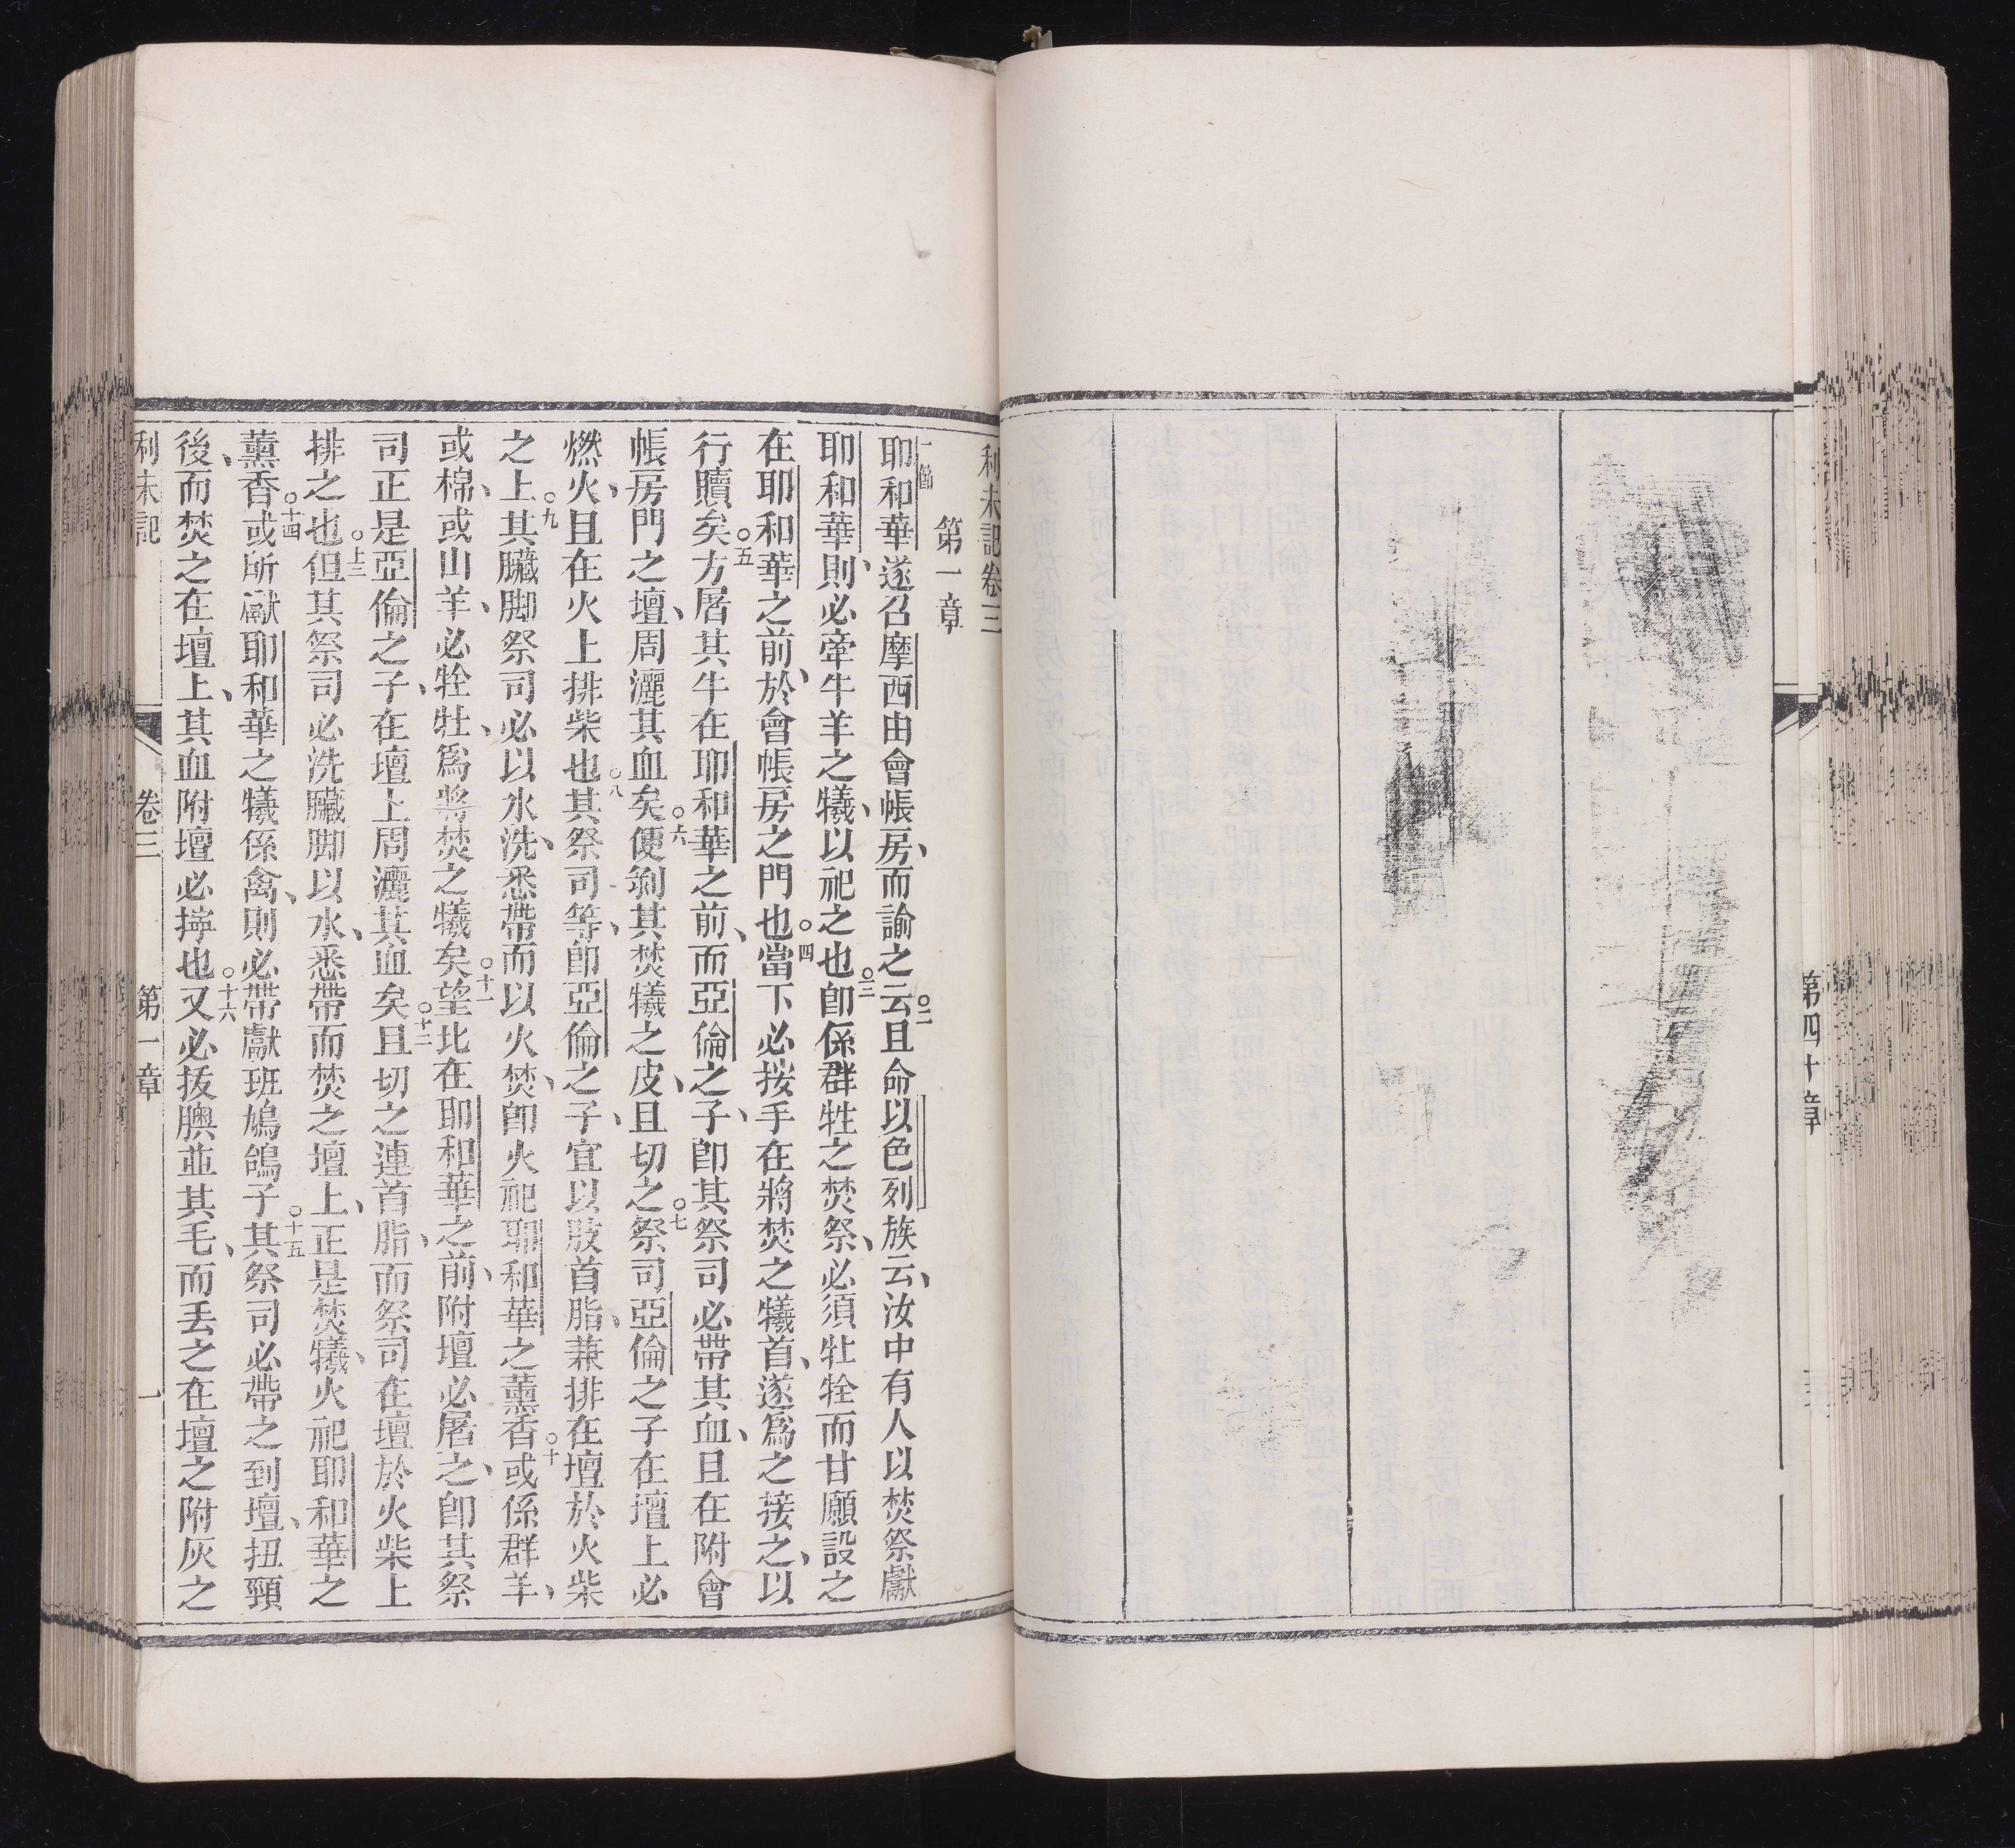 第四十章
利未記卷三
第一章
一節耶和華遂召摩西由會帳房、而諭之云○二且命以色列族云、汝中有人以焚祭獻
耶和華、則必牽牛羊之犧、以祀之也○三卽係群牲之焚祭、必須牡牷而甘願設之
在耶和華之前、於會帳房之門也○四當下必按手在將焚之犧首、遂爲之接之、以
行贖矣○五方屠其牛在耶和華之前、而亞倫之子、卽其祭司必帶其血、且在附會
帳房門之壇、周灑其血矣○六便剝其焚犧之皮、且切之○七祭司亞倫之子在壇上必
燃火、且在火上排柴也○八其祭司等、卽亞倫之子、宜以肢首脂、兼排在壇於火柴
之上○九其臟脚祭司必以水洗、悉帶而以火焚、卽火祀耶和華之薰香○十或係群羊、
或棉、或山羊、必牷牡、爲將焚之犧矣○十一望北在耶和華之前、附壇必屠之、卽其祭
司正是亞倫之子、在壇上周灑其血矣○十二且切之連首脂、而祭司在壇於火柴上
排之也○十三但其祭司必洗臟脚以水、悉帶而焚之壇上、正是焚犧、火祀耶和華之
薰香○十四或所獻耶和華之犧係禽、則必帶獻班鳩鴿子○十五其祭司必帶之到壇、扭頸
後、而焚之在壇上、其血附壇必擠也○十六又必拔膶並其毛、而丢之在壇之附灰之
利未記 卷三 第一章 一